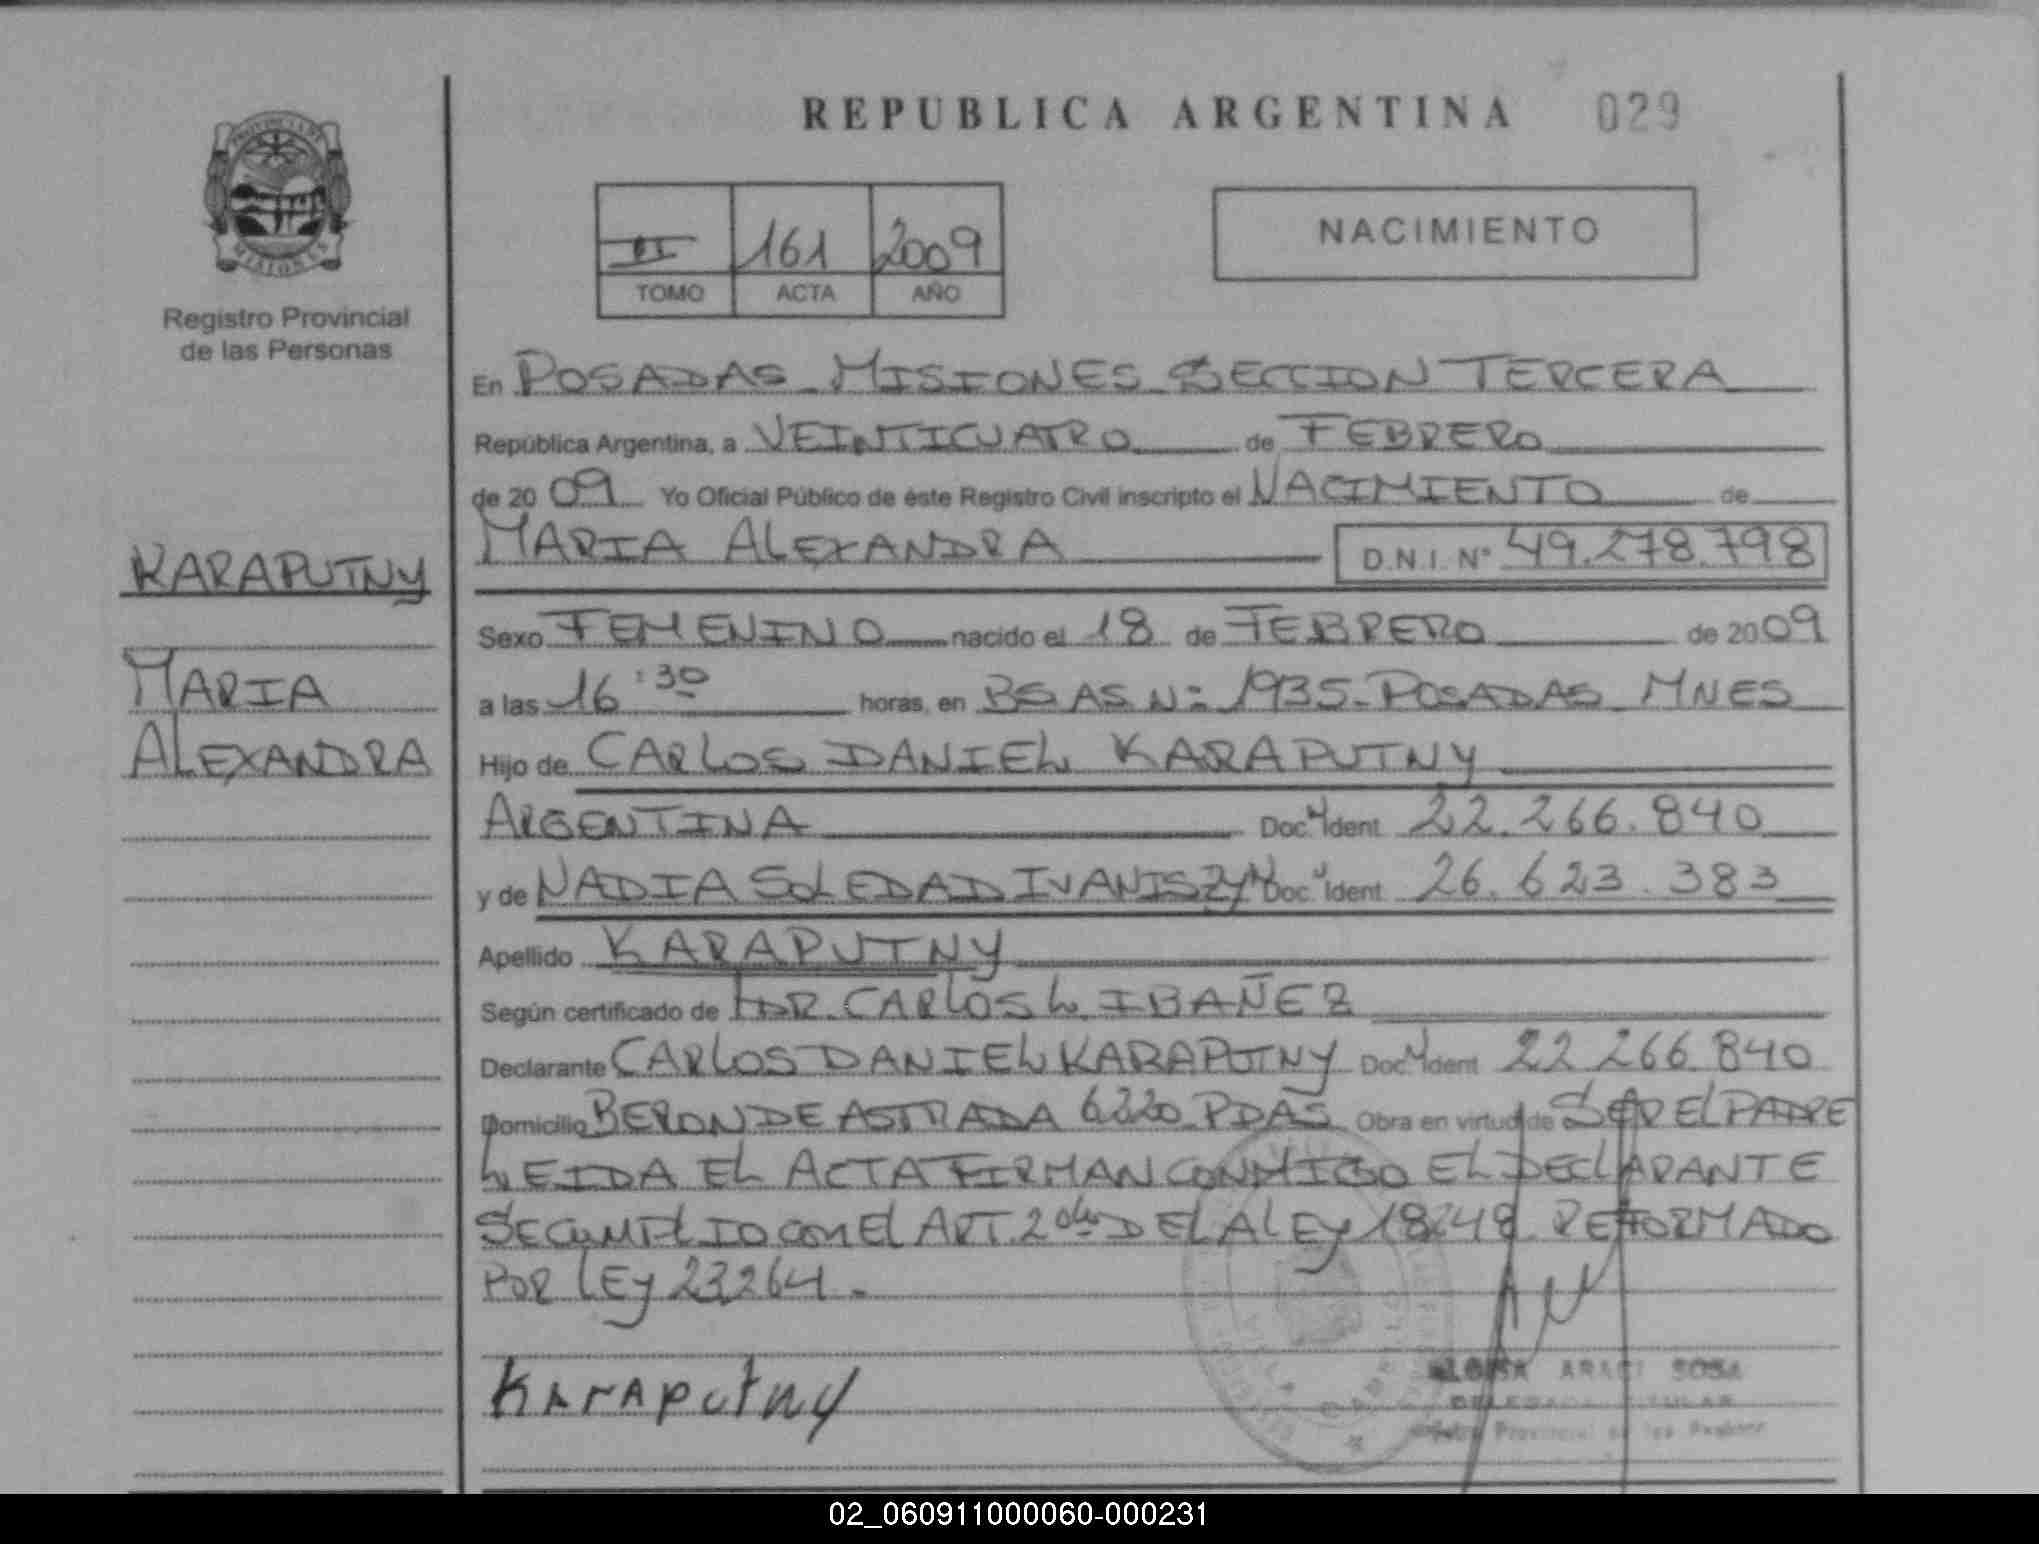 REPUBLICA ARGENTINA 029
PROVINCIA DE
MISIONES
Registro Provincial
de las Personas
II 161 2009
TOMO ACTA AÑO
NACIMIENTO
En POSADAS MISIONES SECCION TERCERA
República Argentina, a VEINTICUATRO de FEBRERO
de 20 09 Yo Oficial Público de éste Registro Civil inscripto el NACIMIENTO de
MARIA ALEXANDRA D.N.I. N° 49.278.798
KARAPUTNY
MARIA
ALEXANDRA
Sexo FEMENINO nacido el 18 de FEBRERO de 2009
a las 16:30 horas, en BS AS N: 1935. POSADAS MNES
Hijo de CARLOS DANIEL KARAPUTNY
ARGENTINA Doc. Ident. 22.266.840
y de NADIA SOLEDAD IVANISZYN Doc. Ident. 26.623.383
Apellido KARAPUTNY
Según certificado de DR. CARLOS L. IBAÑEZ
Declarante CARLOS DANIEL KARAPUTNY Doc. Ident. 22 266.840
Domicilio BERON DE ASTRADA 6220 PDAS Obra en virtud de SER EL PADRE
LEIDA EL ACTA FIRMAN CONMIGO EL DECLARANTE
SE CUMPLIO CON EL ART. 2do DE LA LEY 18248 REFORMADO
POR LEY 23264.
KARAPUTNY
ARACI SOSA
02_060911000060-000231